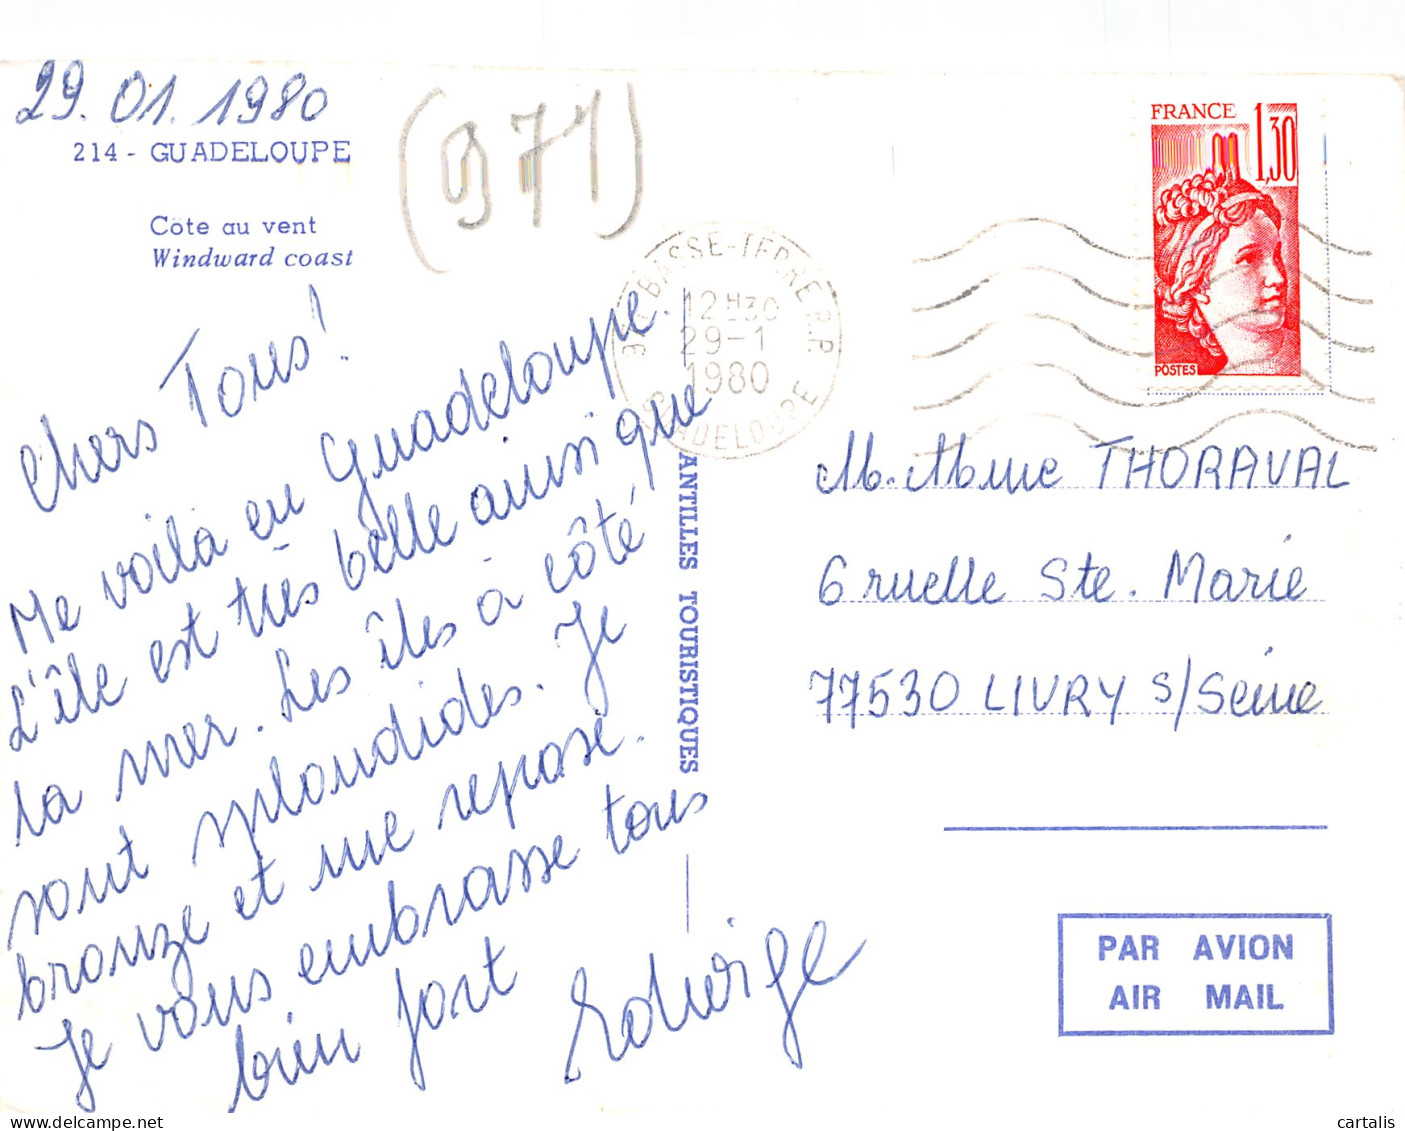 29.01.1980
214 - GUADELOUPE
Côte au vent
Windward coast
(971)
Chers Tous!
Me voilà en Guadeloupe.
L'île est très belle ainsi que
la mer. Les îles à côté
sont splendides. Je
bronze et me repose.
Je vous embrasse tous
bien fort
Edwige
BASSE-TERRE R.P.
12H30
29-1
1980
GUADELOUPE
ANTILLES TOURISTIQUES
FRANCE
1,30
POSTES
M. Mme THORAVAL
6 ruelle Ste. Marie
77530 LIVRY s/Seine
PAR AVION
AIR MAIL
cartalis